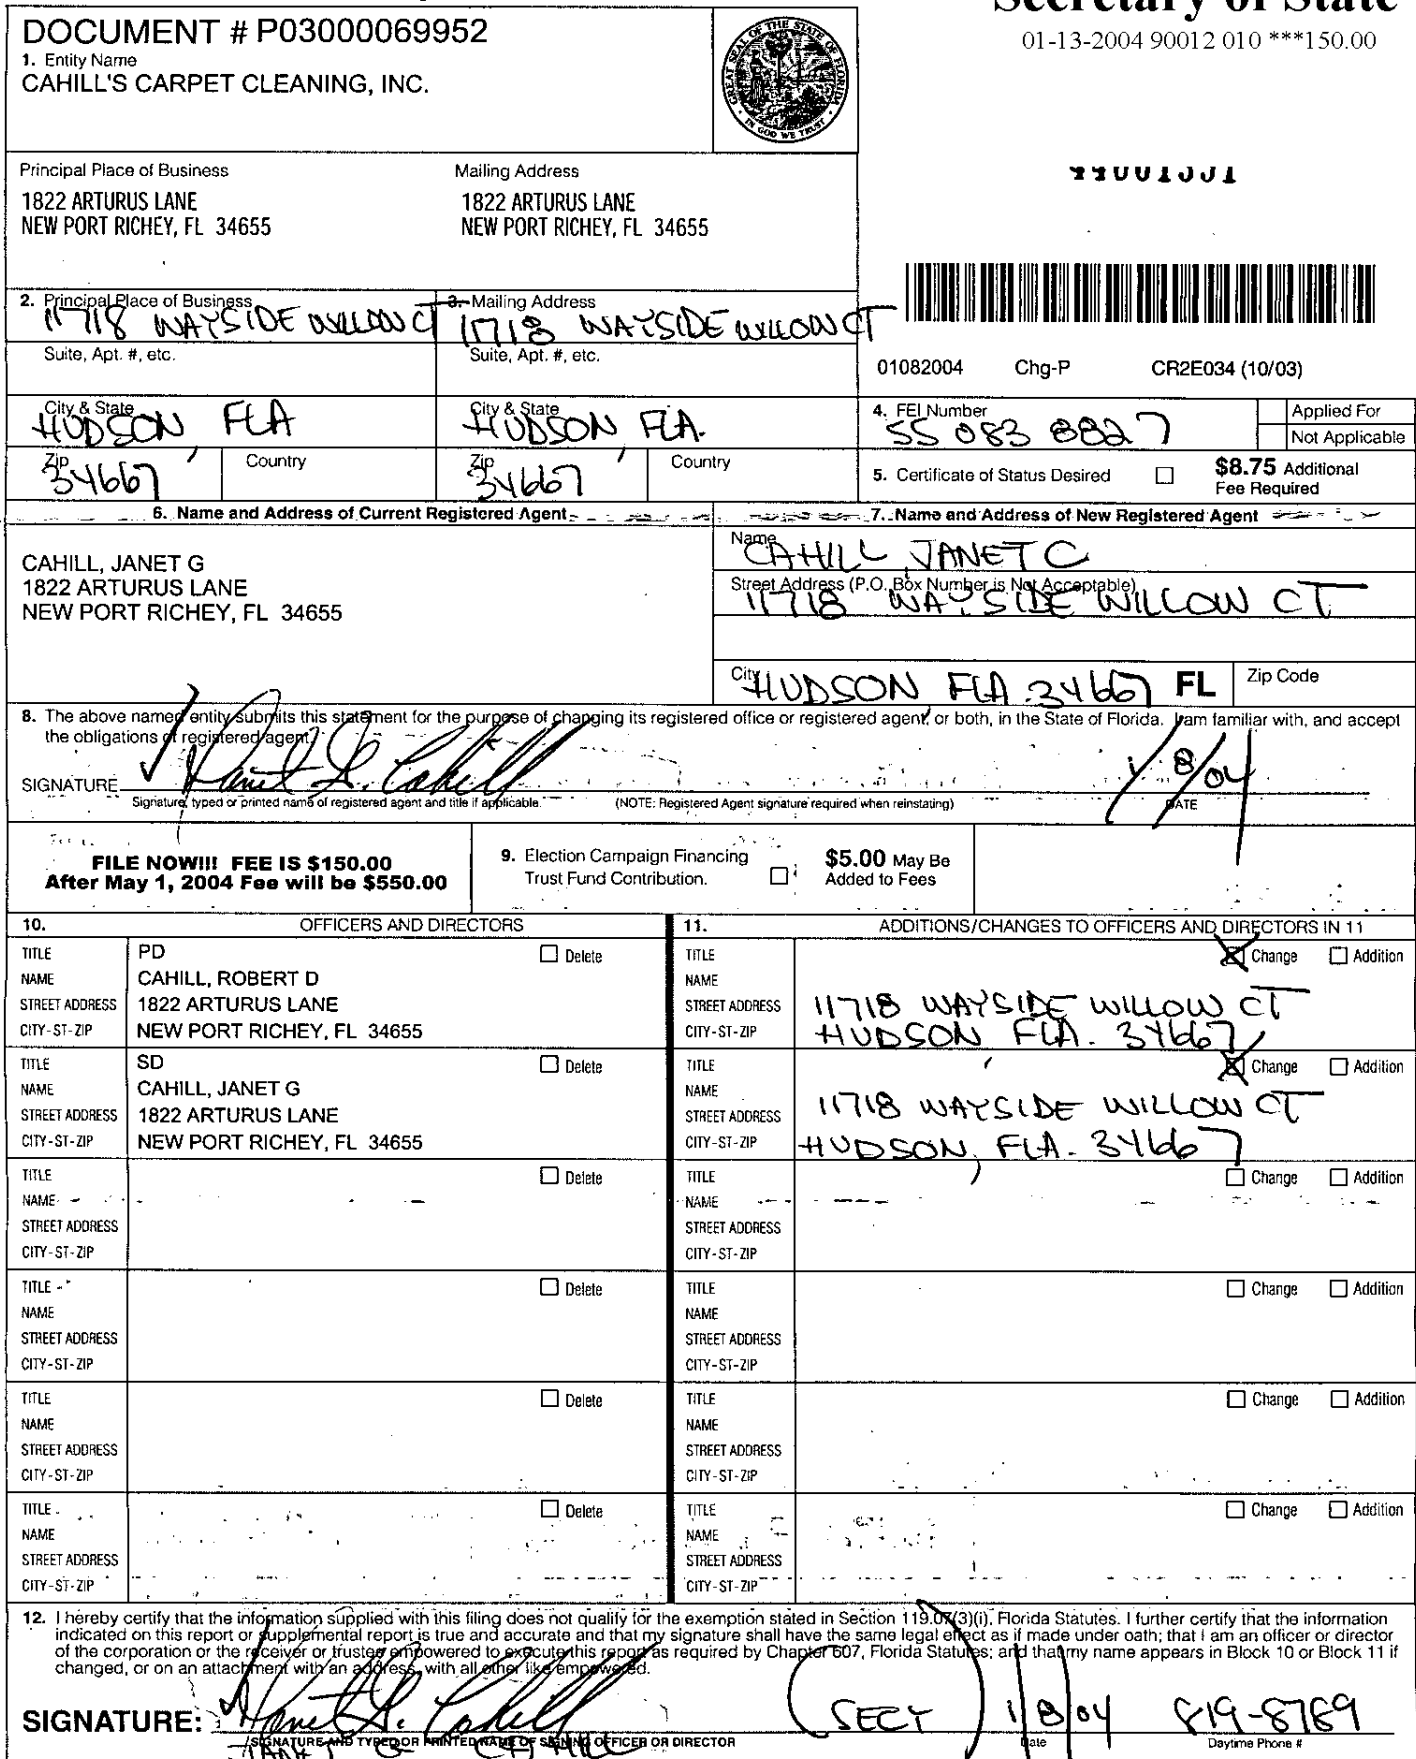 Secretary of State
01-13-2004 90012 010 ***150.00
DOCUMENT # P03000069952
1. Entity Name
CAHILL'S CARPET CLEANING, INC.
GREAT SEAL OF THE STATE OF FLORIDA
IN GOD WE TRUST
Principal Place of Business
1822 ARTURUS LANE
NEW PORT RICHEY, FL 34655
Mailing Address
1822 ARTURUS LANE
NEW PORT RICHEY, FL 34655
2. Principal Place of Business
11718 WAYSIDE WILLOW CT
3. Mailing Address
11718 WAYSIDE WILLOW CT
Suite, Apt. #, etc.
Suite, Apt. #, etc.
01082004 Chg-P CR2E034 (10/03)
City & State
HUDSON, FLA
City & State
HUDSON, FLA.
Zip
34667
Country
Zip
34667
Country
4. FEI Number
55 083 8827
Applied For
Not Applicable
5. Certificate of Status Desired
$8.75 Additional
Fee Required
6. Name and Address of Current Registered Agent
CAHILL, JANET G
1822 ARTURUS LANE
NEW PORT RICHEY, FL 34655
7. Name and Address of New Registered Agent
Name
CAHILL, JANET G
Street Address (P.O. Box Number is Not Acceptable)
11718 WAYSIDE WILLOW CT
City
HUDSON FLA. 34667 FL
Zip Code
8. The above named entity submits this statement for the purpose of changing its registered office or registered agent, or both, in the State of Florida. I am familiar with, and accept
the obligations of registered agent.
SIGNATURE Janet G. Cahill 1/8/04
Signature, typed or printed name of registered agent and title if applicable. (NOTE: Registered Agent signature required when reinstating) DATE
FILE NOW!!! FEE IS $150.00
After May 1, 2004 Fee will be $550.00
9. Election Campaign Financing
Trust Fund Contribution.
$5.00 May Be
Added to Fees
10. OFFICERS AND DIRECTORS
TITLE PD Delete
NAME CAHILL, ROBERT D
STREET ADDRESS 1822 ARTURUS LANE
CITY-ST-ZIP NEW PORT RICHEY, FL 34655
TITLE SD Delete
NAME CAHILL, JANET G
STREET ADDRESS 1822 ARTURUS LANE
CITY-ST-ZIP NEW PORT RICHEY, FL 34655
TITLE Delete
NAME
STREET ADDRESS
CITY-ST-ZIP
TITLE Delete
NAME
STREET ADDRESS
CITY-ST-ZIP
TITLE Delete
NAME
STREET ADDRESS
CITY-ST-ZIP
TITLE Delete
NAME
STREET ADDRESS
CITY-ST-ZIP
11. ADDITIONS/CHANGES TO OFFICERS AND DIRECTORS IN 11
TITLE Change Addition
NAME
STREET ADDRESS 11718 WAYSIDE WILLOW CT
CITY-ST-ZIP HUDSON, FLA. 34667
TITLE Change Addition
NAME
STREET ADDRESS 11718 WAYSIDE WILLOW CT
CITY-ST-ZIP HUDSON, FLA. 34667
TITLE Change Addition
NAME
STREET ADDRESS
CITY-ST-ZIP
TITLE Change Addition
NAME
STREET ADDRESS
CITY-ST-ZIP
TITLE Change Addition
NAME
STREET ADDRESS
CITY-ST-ZIP
TITLE Change Addition
NAME
STREET ADDRESS
CITY-ST-ZIP
12. I hereby certify that the information supplied with this filing does not qualify for the exemption stated in Section 119.07(3)(i), Florida Statutes. I further certify that the information
indicated on this report or supplemental report is true and accurate and that my signature shall have the same legal effect as if made under oath; that I am an officer or director
of the corporation or the receiver or trustee empowered to execute this report as required by Chapter 607, Florida Statutes; and that my name appears in Block 10 or Block 11 if
changed, or on an attachment with an address, with all other like empowered.
SIGNATURE: Janet G. Cahill (SECY) 1/8/04 819-8789
SIGNATURE AND TYPED OR PRINTED NAME OF SIGNING OFFICER OR DIRECTOR Date Daytime Phone #
JANET G CAHILL